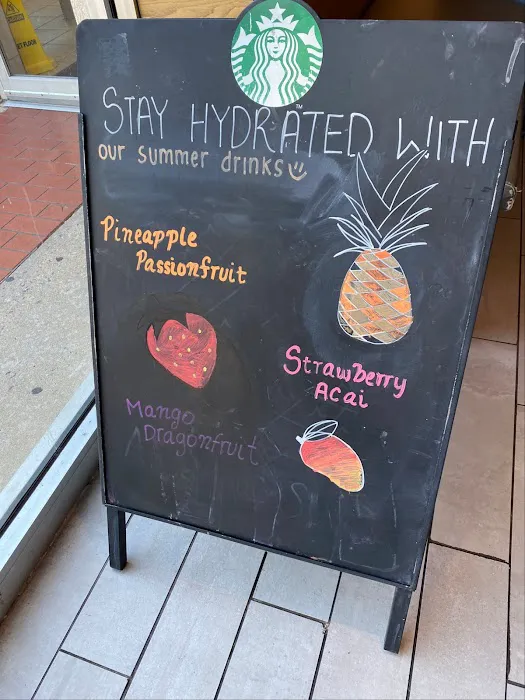 STAY HYDRATED WITH
our summer drinks
Pineapple
Passionfruit
Strawberry
Acai
Mango
Dragonfruit
TM